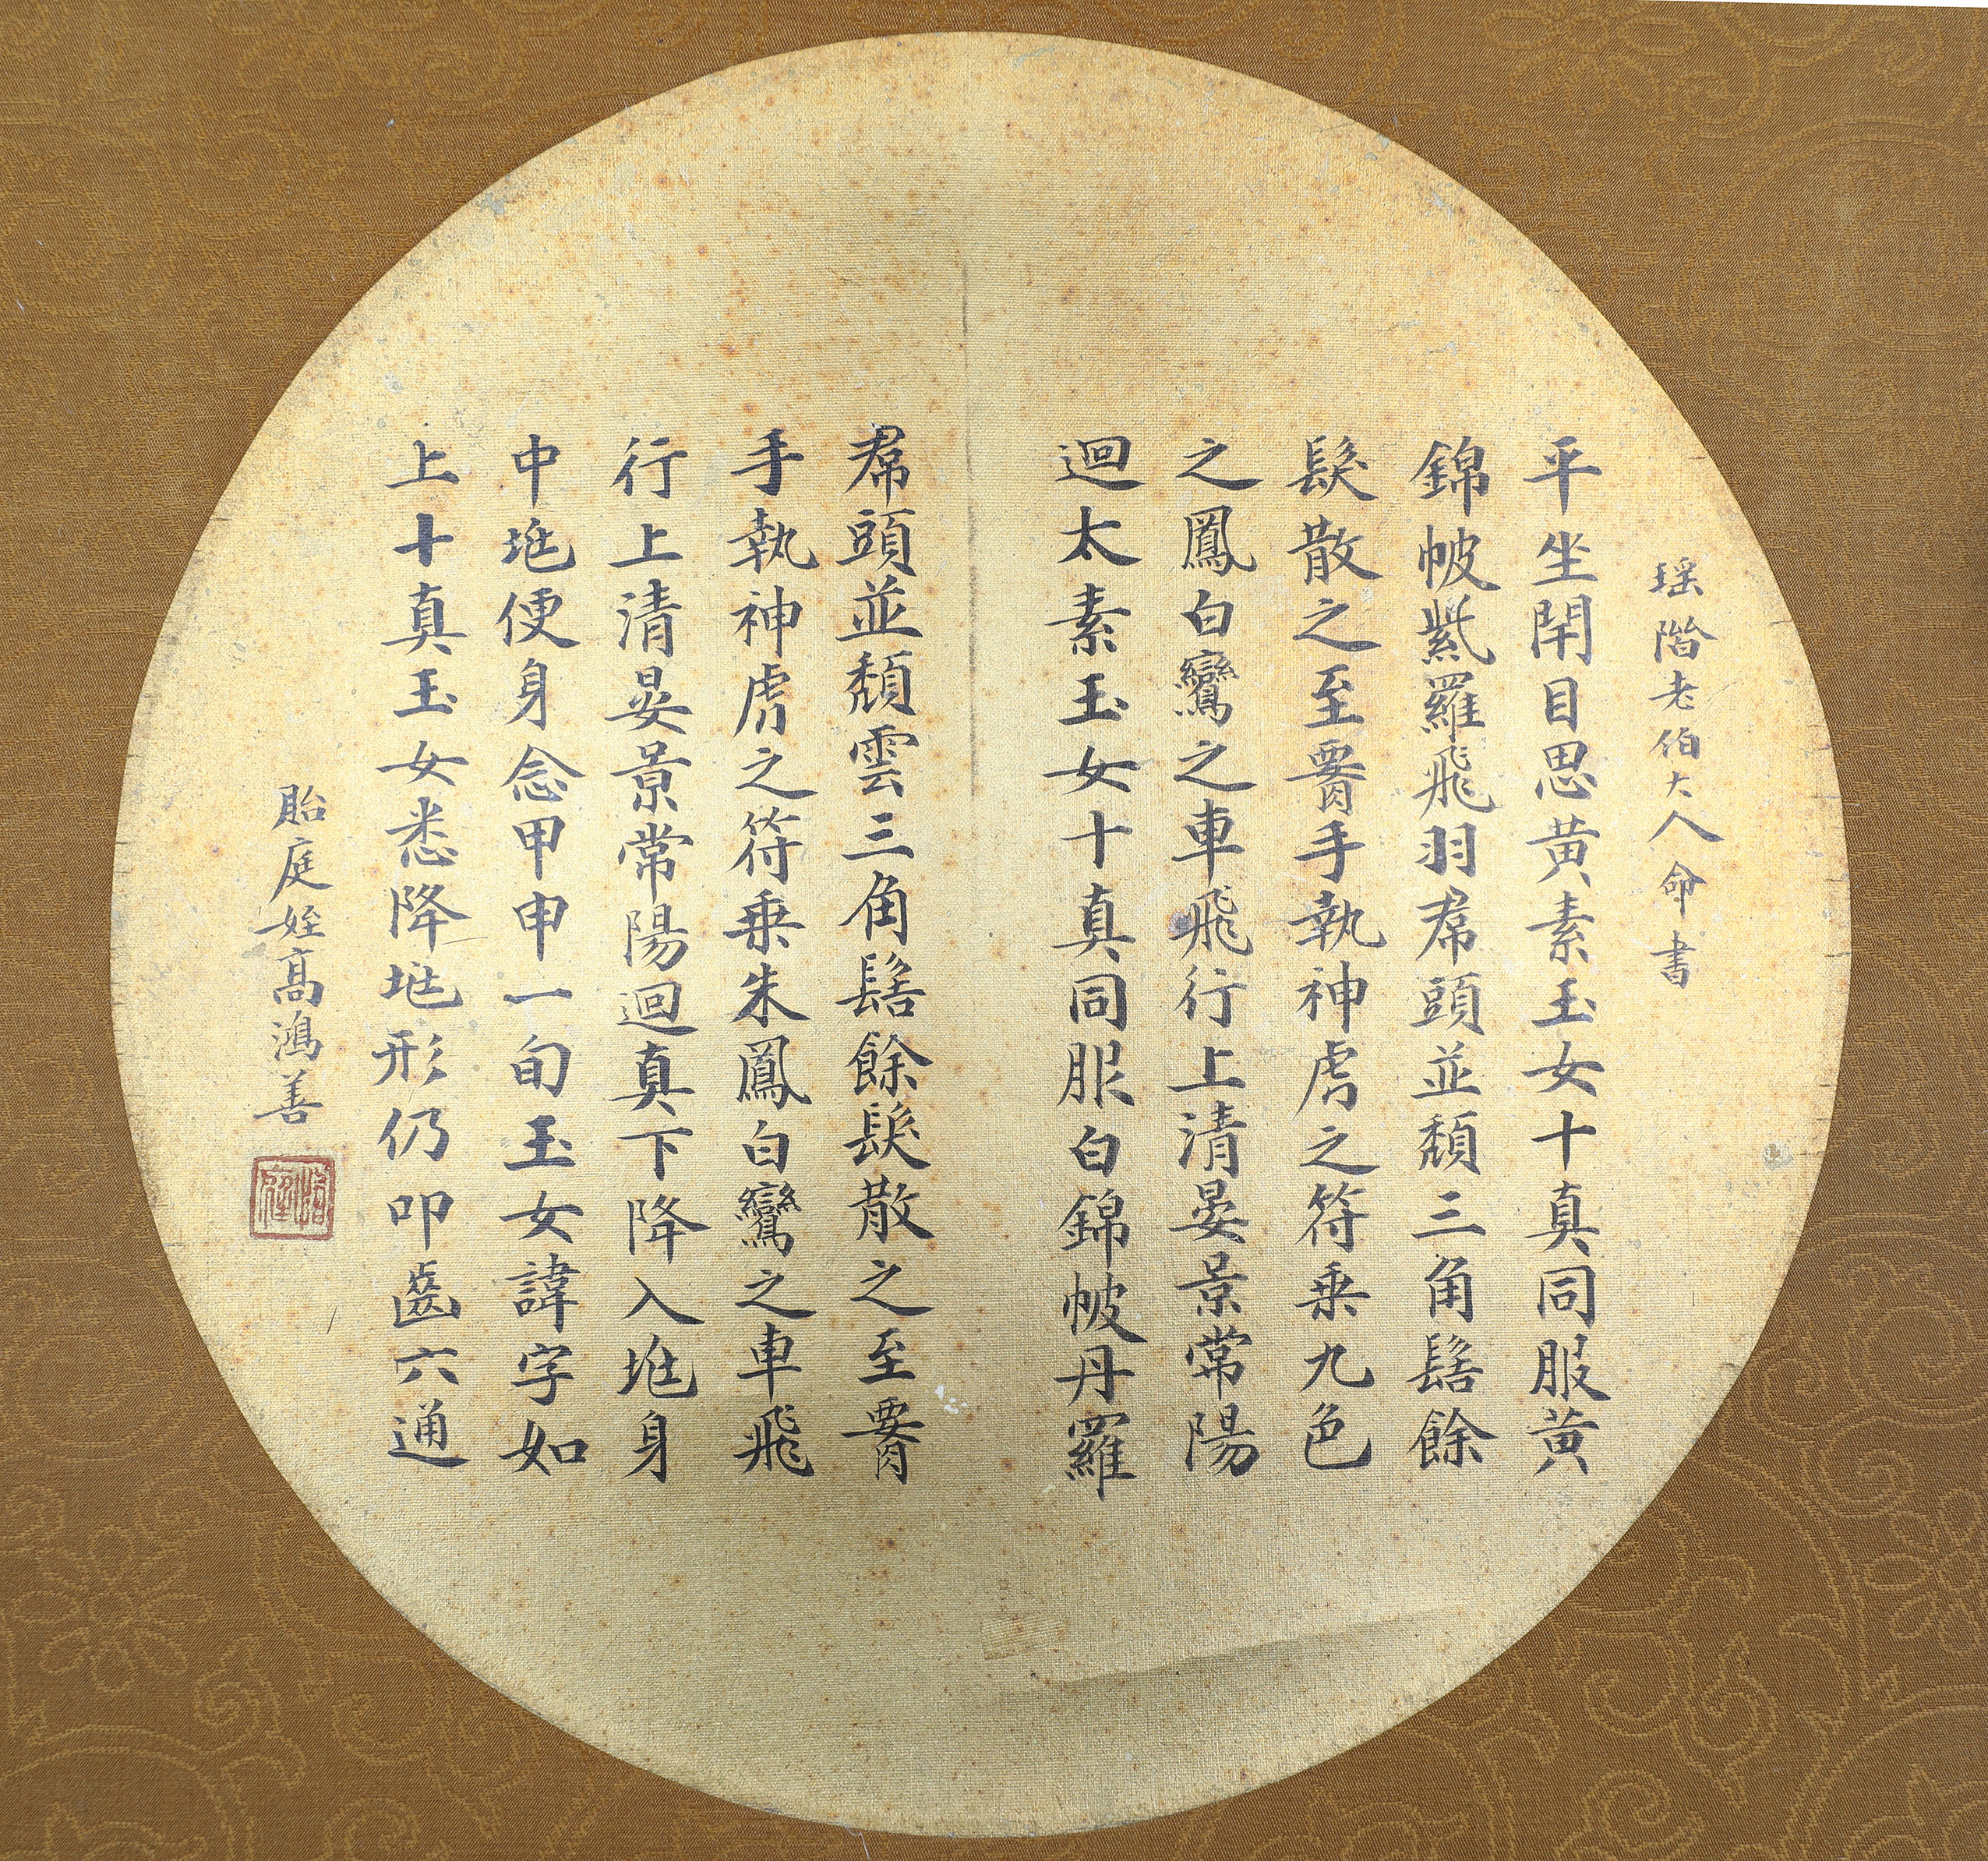 瑶階老伯大人命書
平坐閉目思黄素玉女十真同服黄
錦帔紫羅飛羽帬頭並頹三角髻餘
髮散之至腰手執神虎之符乗九色
之鳳白鸞之車飛行上清晏景常陽
迴太素玉女十真同服白錦帔丹羅
帬頭並頹雲三角髻餘髮散之至腰
手執神虎之符乗朱鳳白鸞之車飛
行上清晏景常陽迴真下降入兆身
中兆便身念甲申一旬玉女諱字如
上十真玉女悉降兆形仍叩齒六通
貽庭姪高鴻善